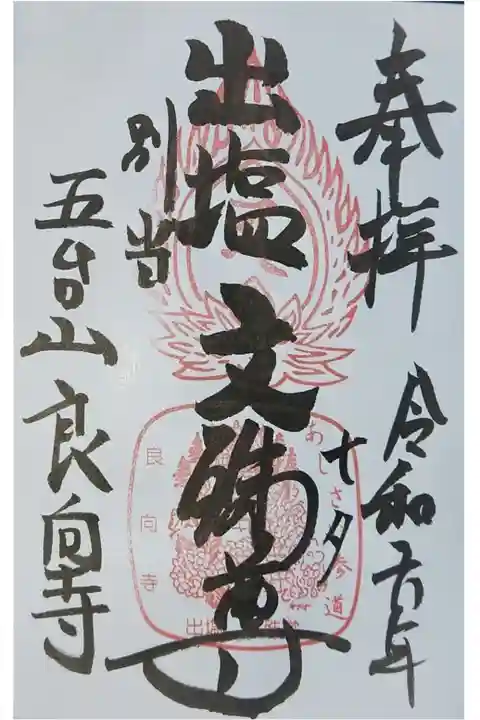 奉拝
令和五年
七夕
出塩文殊尊
別当
五台山良向寺
あじさ参道
良向寺
出塩